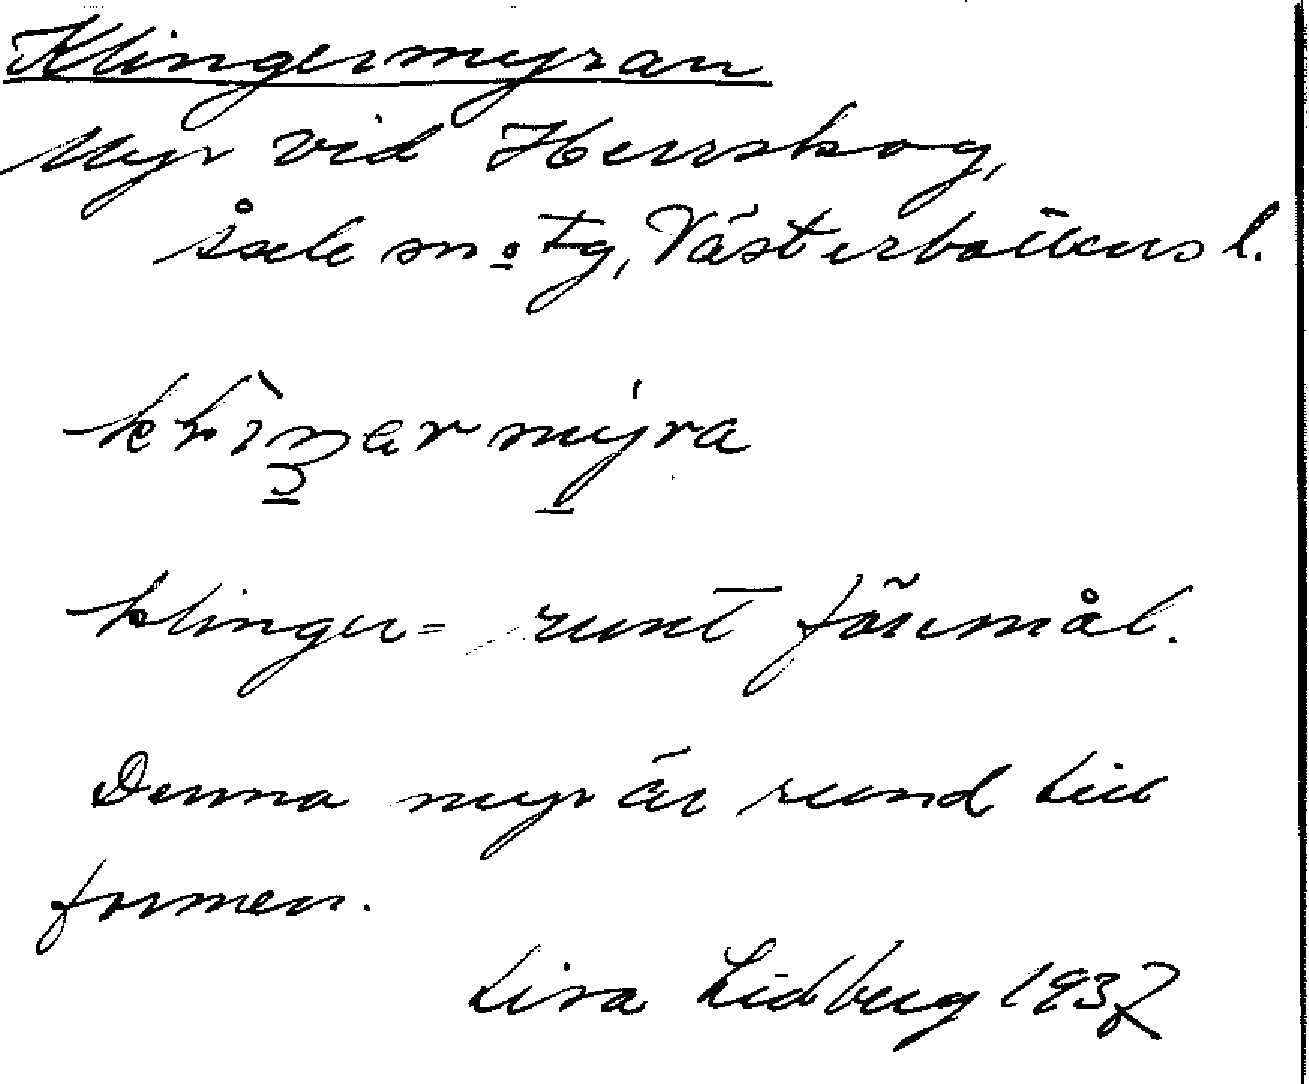 Klingermyran
Myr vid Herrskog,
Åsele sn o tg, Västerbottens l.
klinger= runt föremål.
Denna myr är rund till
formen.
Lisa Lidberg 1937